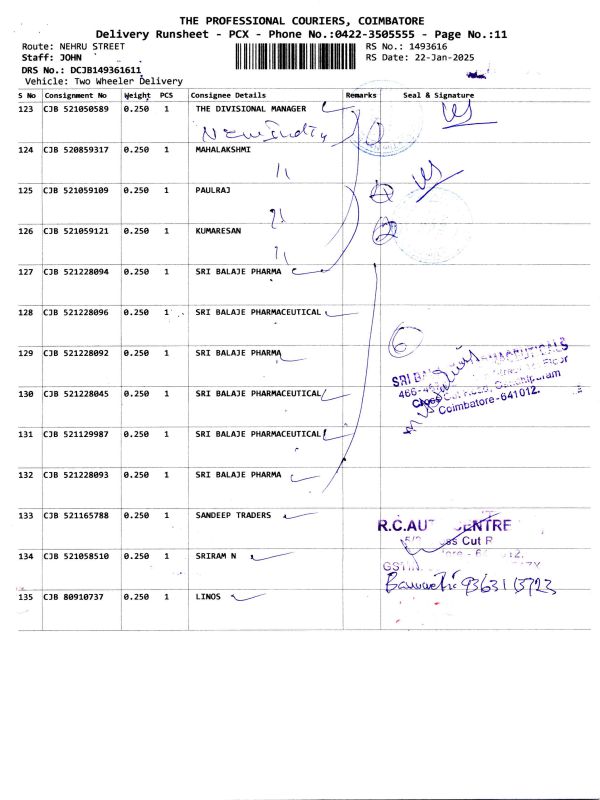 THE PROFESSIONAL COURIERS, COIMBATORE
Delivery Runsheet - PCX - Phone No.:0422-3505555 - Page No.:11
Route: NEHRU STREET RS No.: 1493616
Staff: JOHN RS Date: 22-Jan-2025
DRS No.: DCJB149361611
Vehicle: Two Wheeler Delivery
S No Consignment No Weight PCS Consignee Details Remarks Seal & Signature
123 CJB 521050589 0.250 1 THE DIVISIONAL MANAGER
New India
124 CJB 520859317 0.250 1 MAHALAKSHMI
125 CJB 521059109 0.250 1 PAULRAJ
4
126 CJB 521059121 0.250 1 KUMARESAN
2
127 CJB 521228094 0.250 1 SRI BALAJE PHARMA
128 CJB 521228096 0.250 1 SRI BALAJE PHARMACEUTICAL
6
129 CJB 521228092 0.250 1 SRI BALAJE PHARMA
130 CJB 521228045 0.250 1 SRI BALAJE PHARMACEUTICAL
Coimbatore-641012.
131 CJB 521129987 0.250 1 SRI BALAJE PHARMACEUTICAL
132 CJB 521228093 0.250 1 SRI BALAJE PHARMA
133 CJB 521165788 0.250 1 SANDEEP TRADERS
R.C.AUT ENTRE
ss Cut R
134 CJB 521058510 0.250 1 SRIRAM N
135 CJB 80910737 0.250 1 LINOS